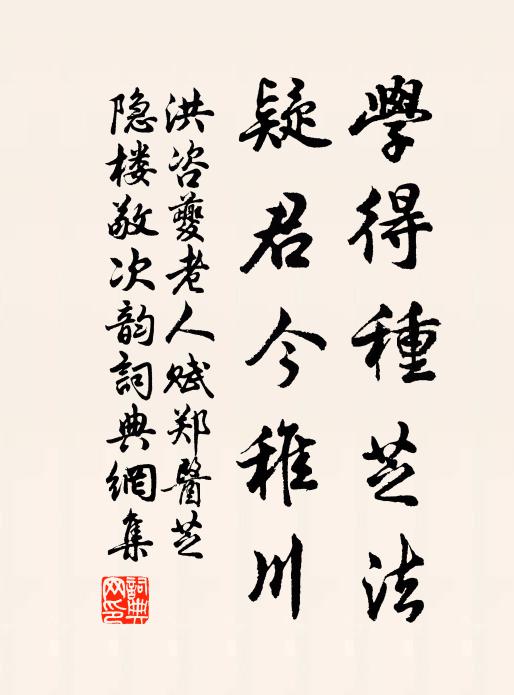 學得種芝法
疑君今稚川
洪咨夔老人赋郑醫芝
隐楼敬次韵詞典網集
詞典網印